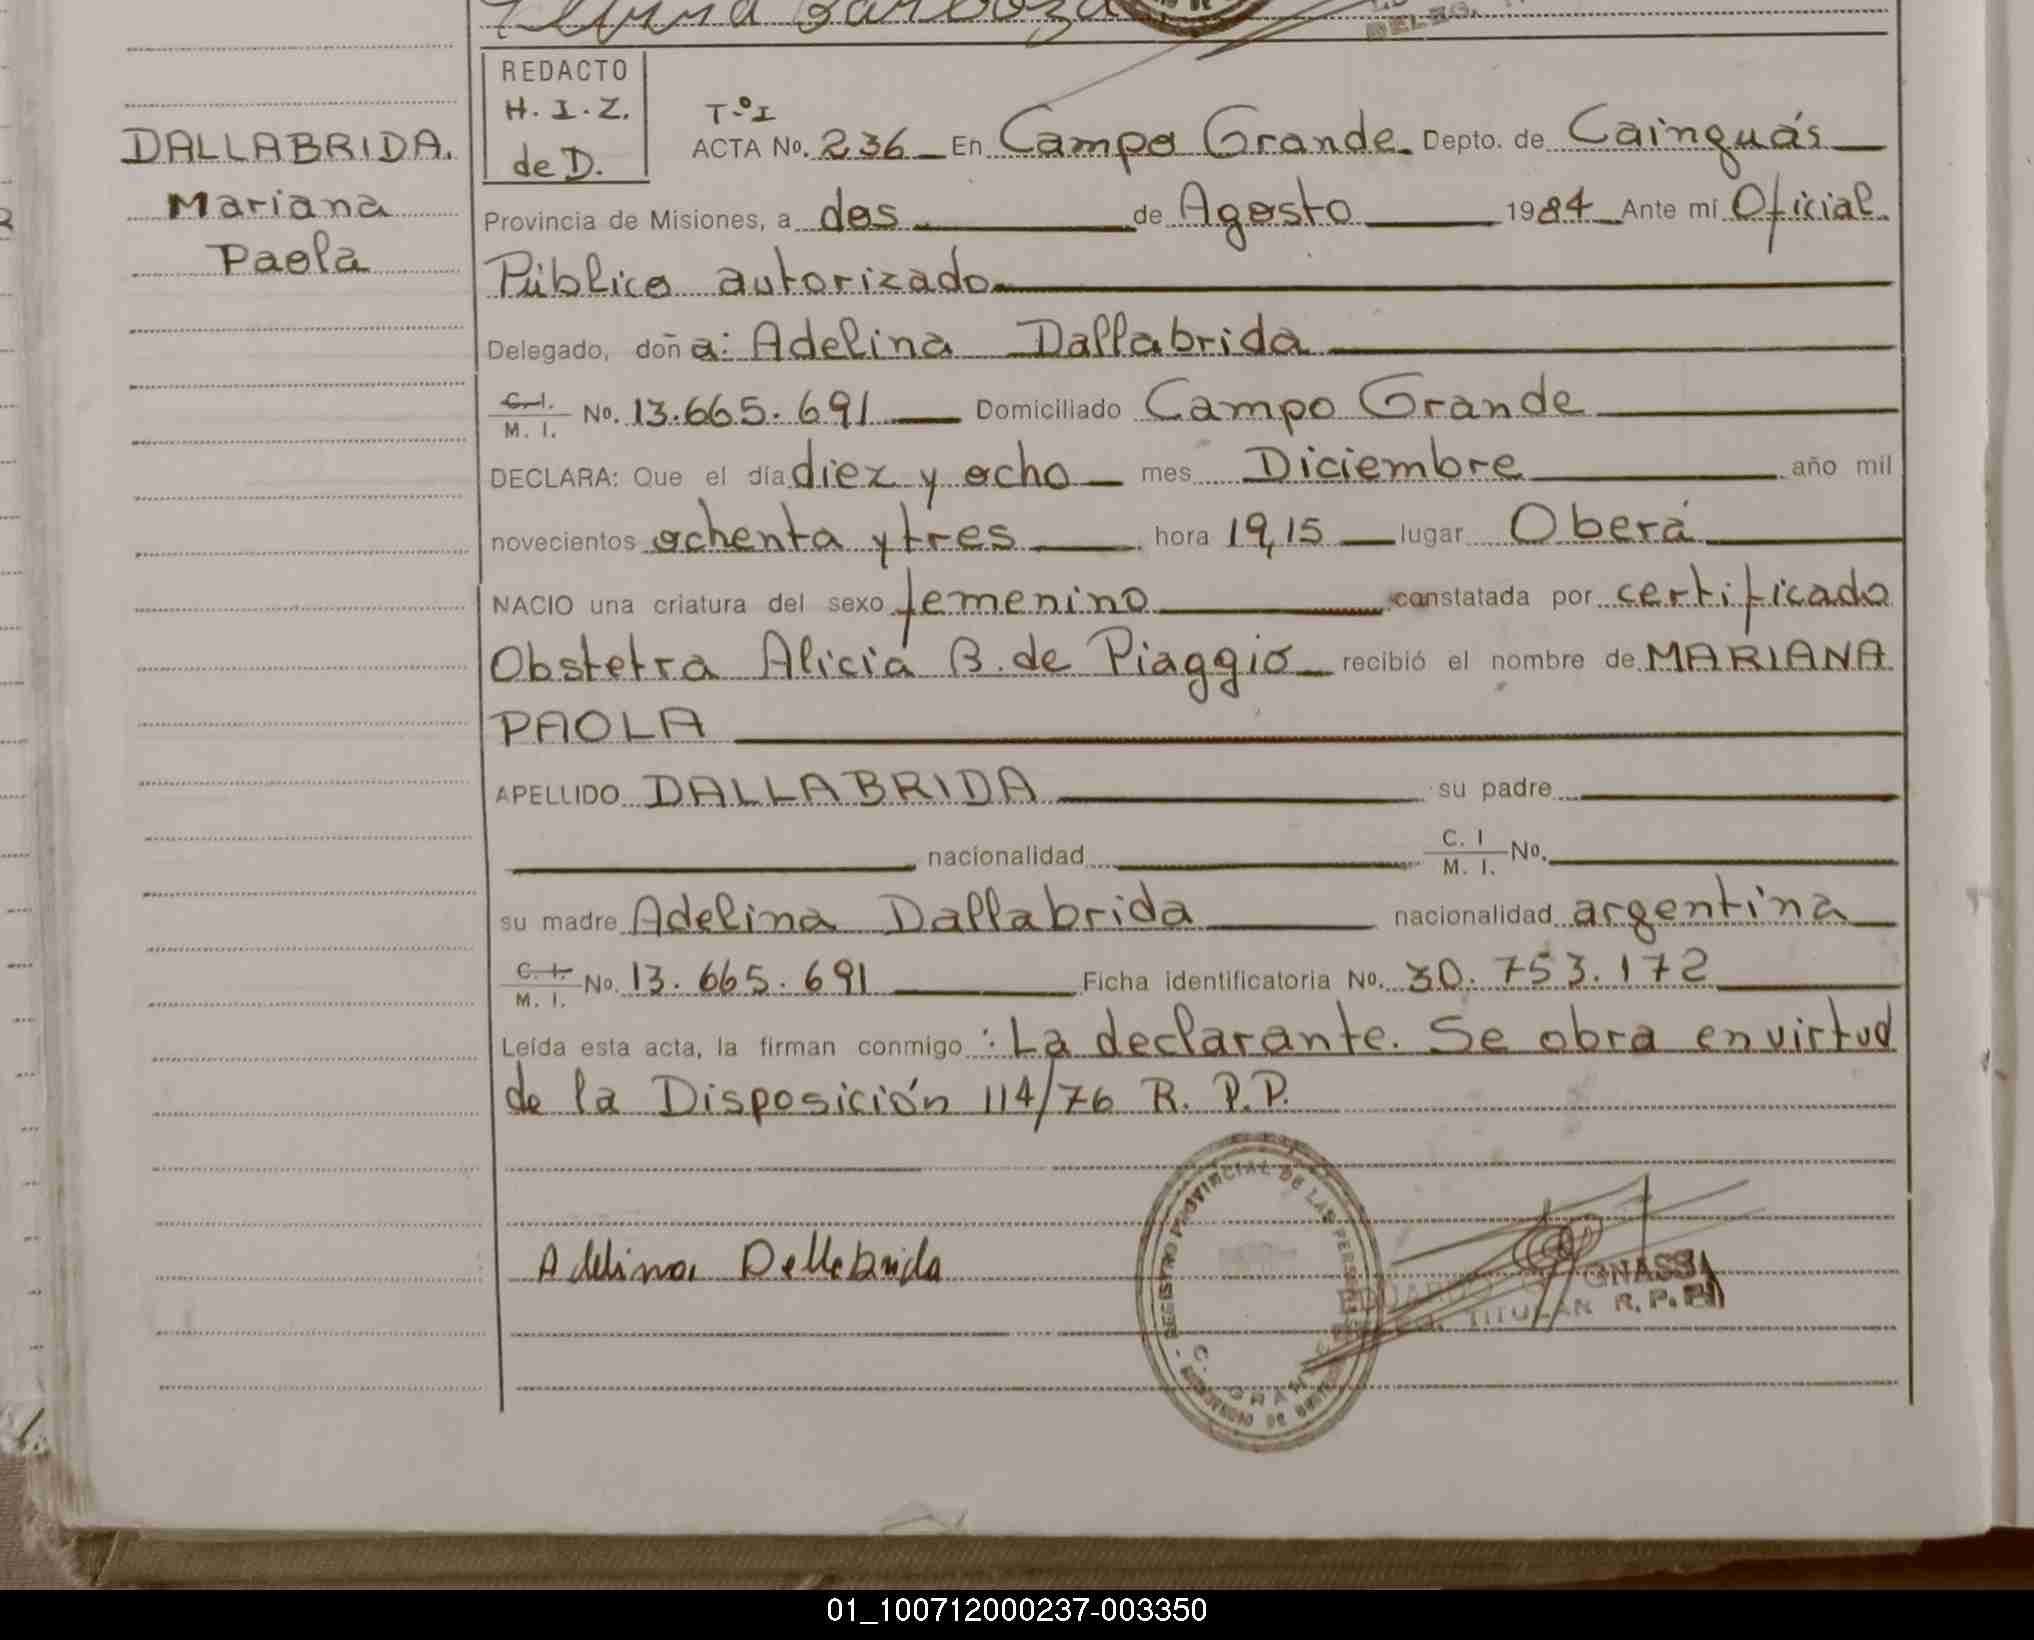 DALLABRIDA.
Mariana
Paola
REDACTO
H. I. Z.
de D.
T.º I
ACTA No. 236 En Campo Grande Depto. de Cainguás
Provincia de Misiones, a dos de Agosto 1984 Ante mí Oficial
Público autorizado
Delegado, doña: Adelina Dallabrida
C. I.
M. I. No. 13.665.691 Domiciliado Campo Grande
DECLARA: Que el día diez y ocho mes Diciembre año mil
novecientos ochenta y tres hora 19,15 lugar Oberá
NACIO una criatura del sexo femenino constatada por certificado
Obstetra Alicia B. de Piaggio recibió el nombre de MARIANA
PAOLA
APELLIDO DALLABRIDA su padre
nacionalidad C. I
M. I. No.
su madre Adelina Dallabrida nacionalidad argentina
C. I.
M. I. No. 13.665.691 Ficha identificatoria No. 30.753.172
Leída esta acta, la firman conmigo: La declarante. Se obra en virtud
de la Disposición 114/76 R. P.P.
Adelina Dallabrida
REGISTRO PROVINCIAL DE LAS
C. GRANDE
EDUARDO
TITULAR R.P.P.
01_100712000237-003350